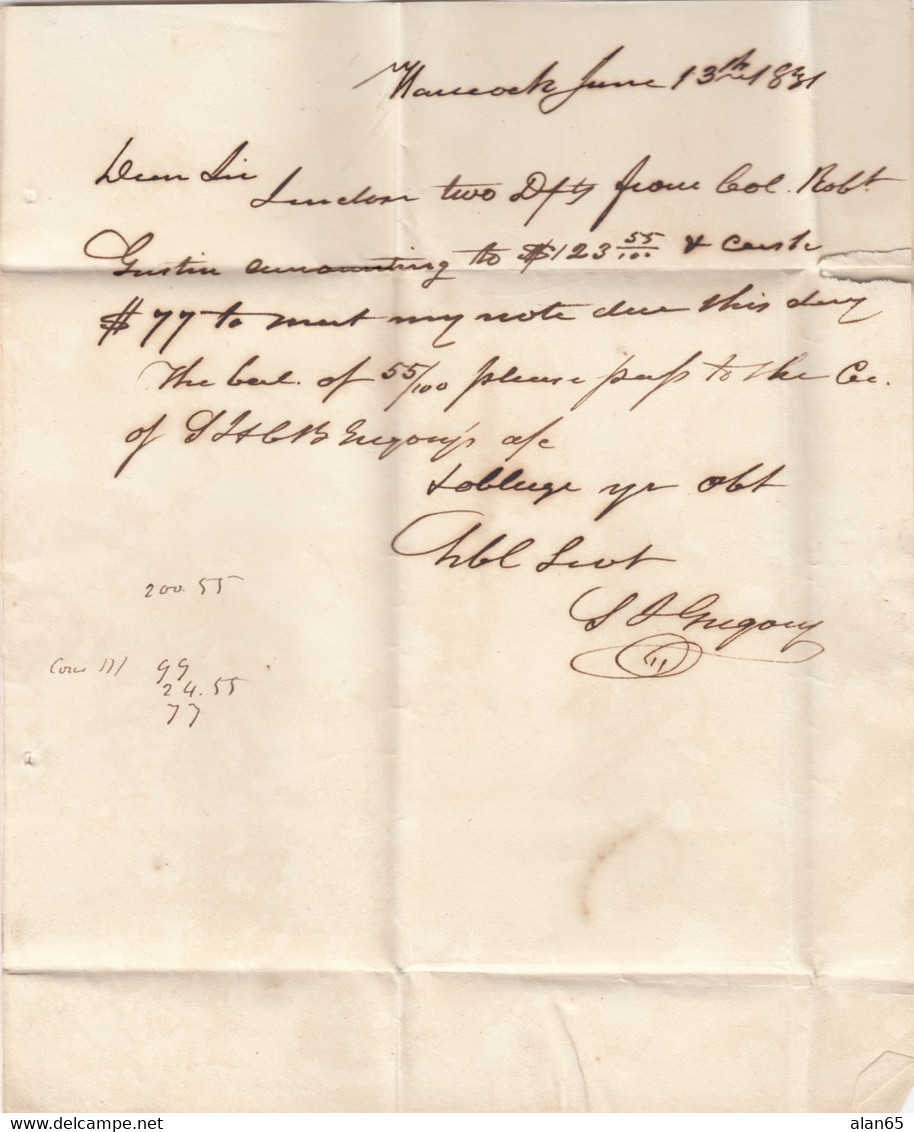 Hancock June 13th 1831
Dear Sir
I inclose two Dfts from Col. Robt
Gustin amounting to $123 55/100 & cash
$77 to meet my note due this day
The bal. of 55/100 please pass to the Cr.
of S & C B Gregory's a/c
& obleige yr obt
Hbl Servt
S Gregory
200.55
99
24.55
77
alan65